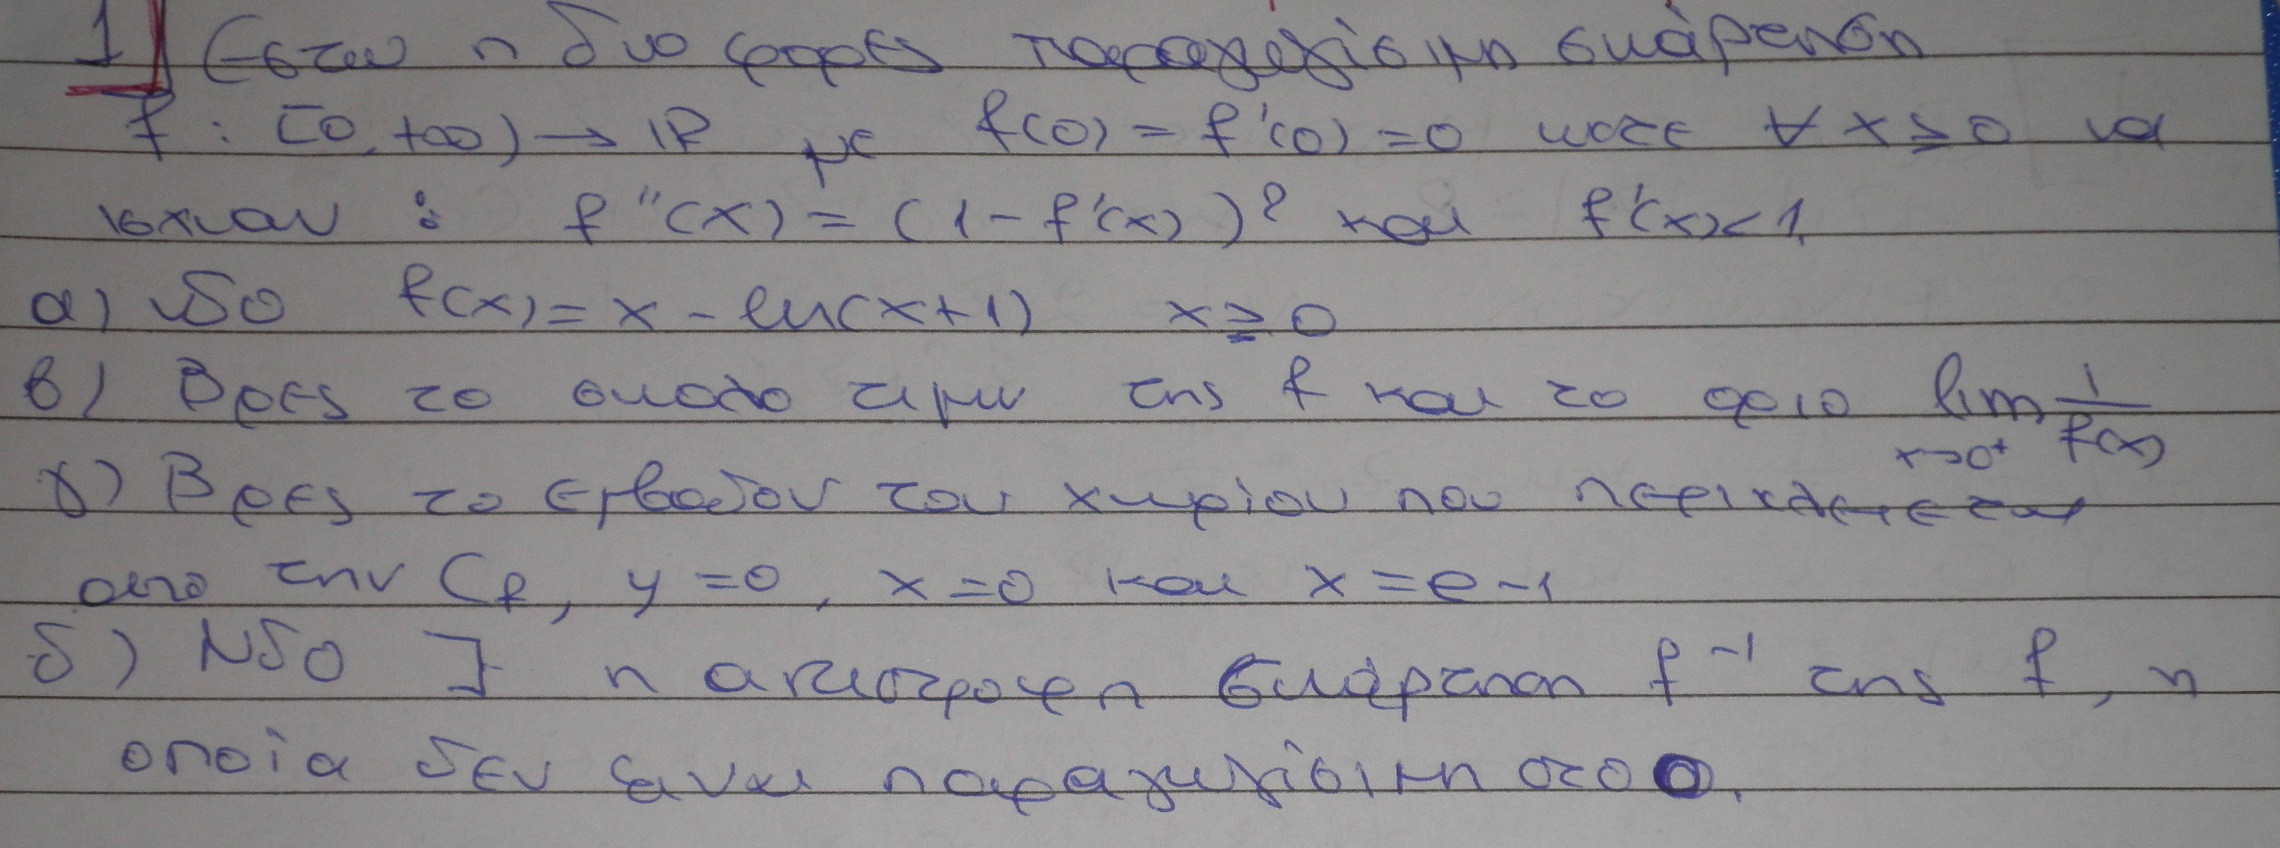 1) Εστω η δυο φορες παραγωγίσιμη συνάρτηση
f : [0, +∞) → IR με f(0) = f'(0) = 0 ωστε ∀ x ≥ 0 να
ισχυουν : f''(x) = (1 - f'(x))² και f'(x) < 1.
α) νδο f(x) = x - ln(x+1) x ≥ 0
β) Βρες το συνολο τιμων της f και το οριο lim x→0⁺ 1/f(x)
γ) Βρες το εμβαδον του χωρίου που περικλειεται
απο την Cf, y = 0, x = 0 και x = e-1
δ) Νδο ∃ η αντιστροφη συνάρτηση f⁻¹ της f, η
οποία δεν ειναι παραγωγίσιμη στο 0.